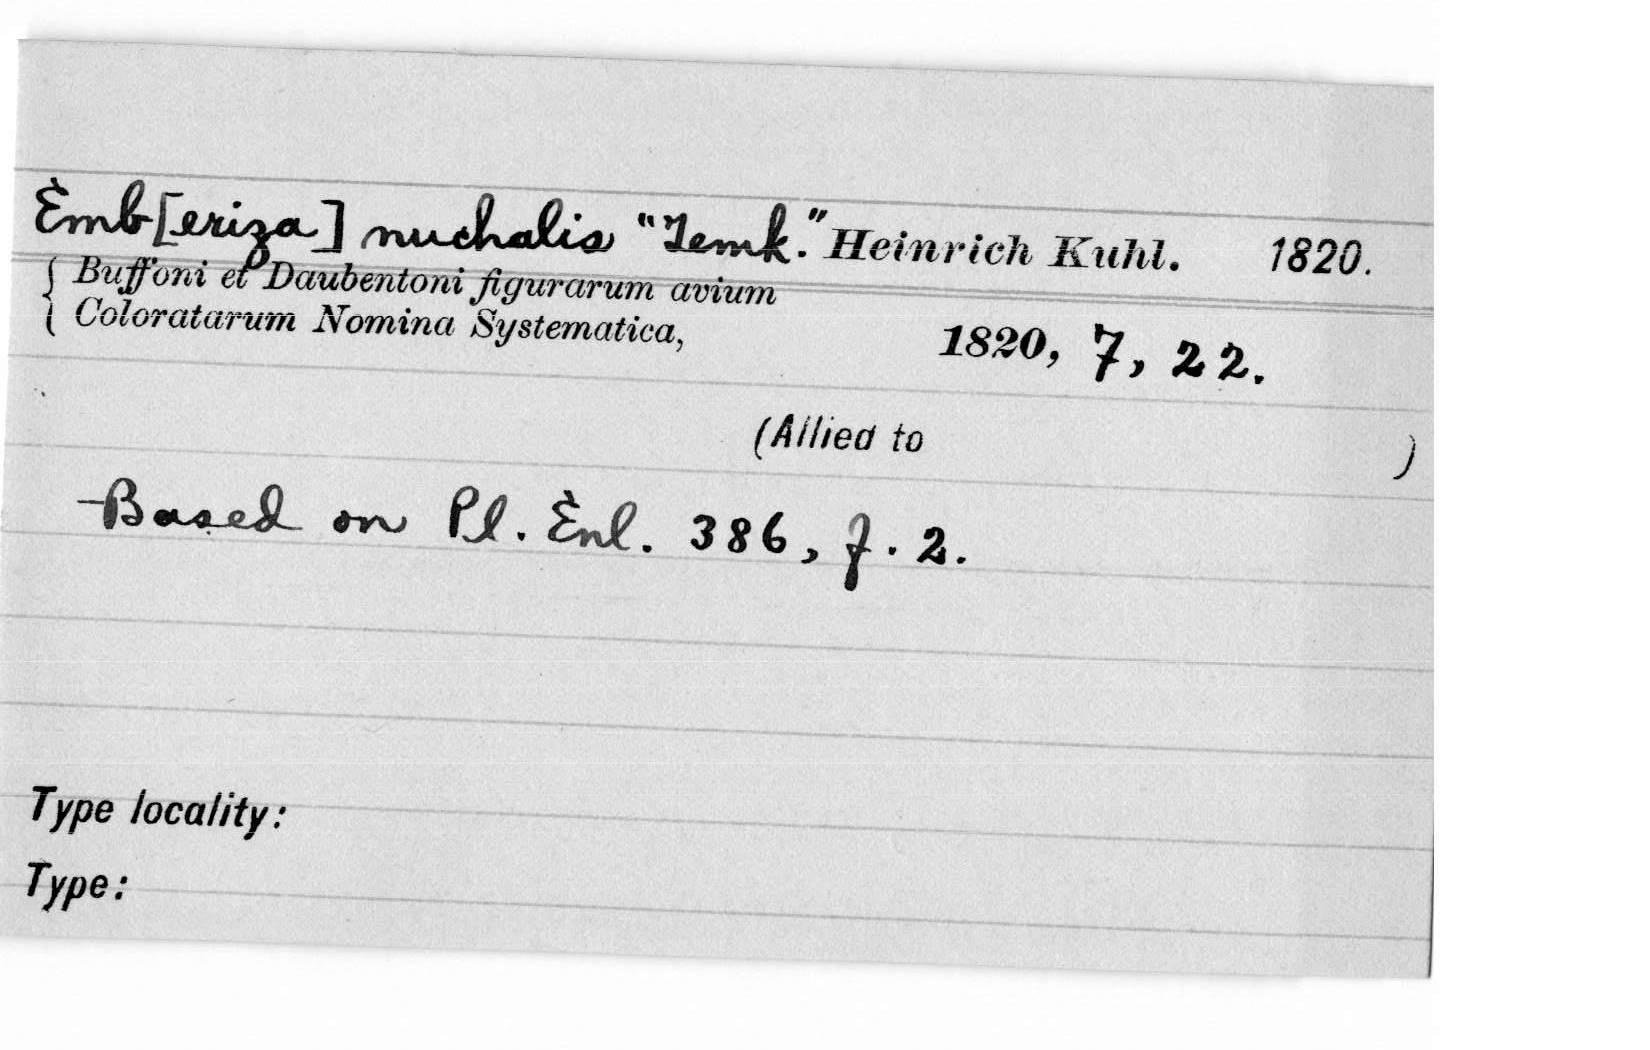 Emb[eriza] nuchalis "Temk." Heinrich Kuhl. 1820.
Buffoni et Daubentoni figurarum avium
Coloratarum Nomina Systematica, 1820, 7, 22.
(Allied to )
Based on Pl. Enl. 386, f. 2.
Type locality:
Type: